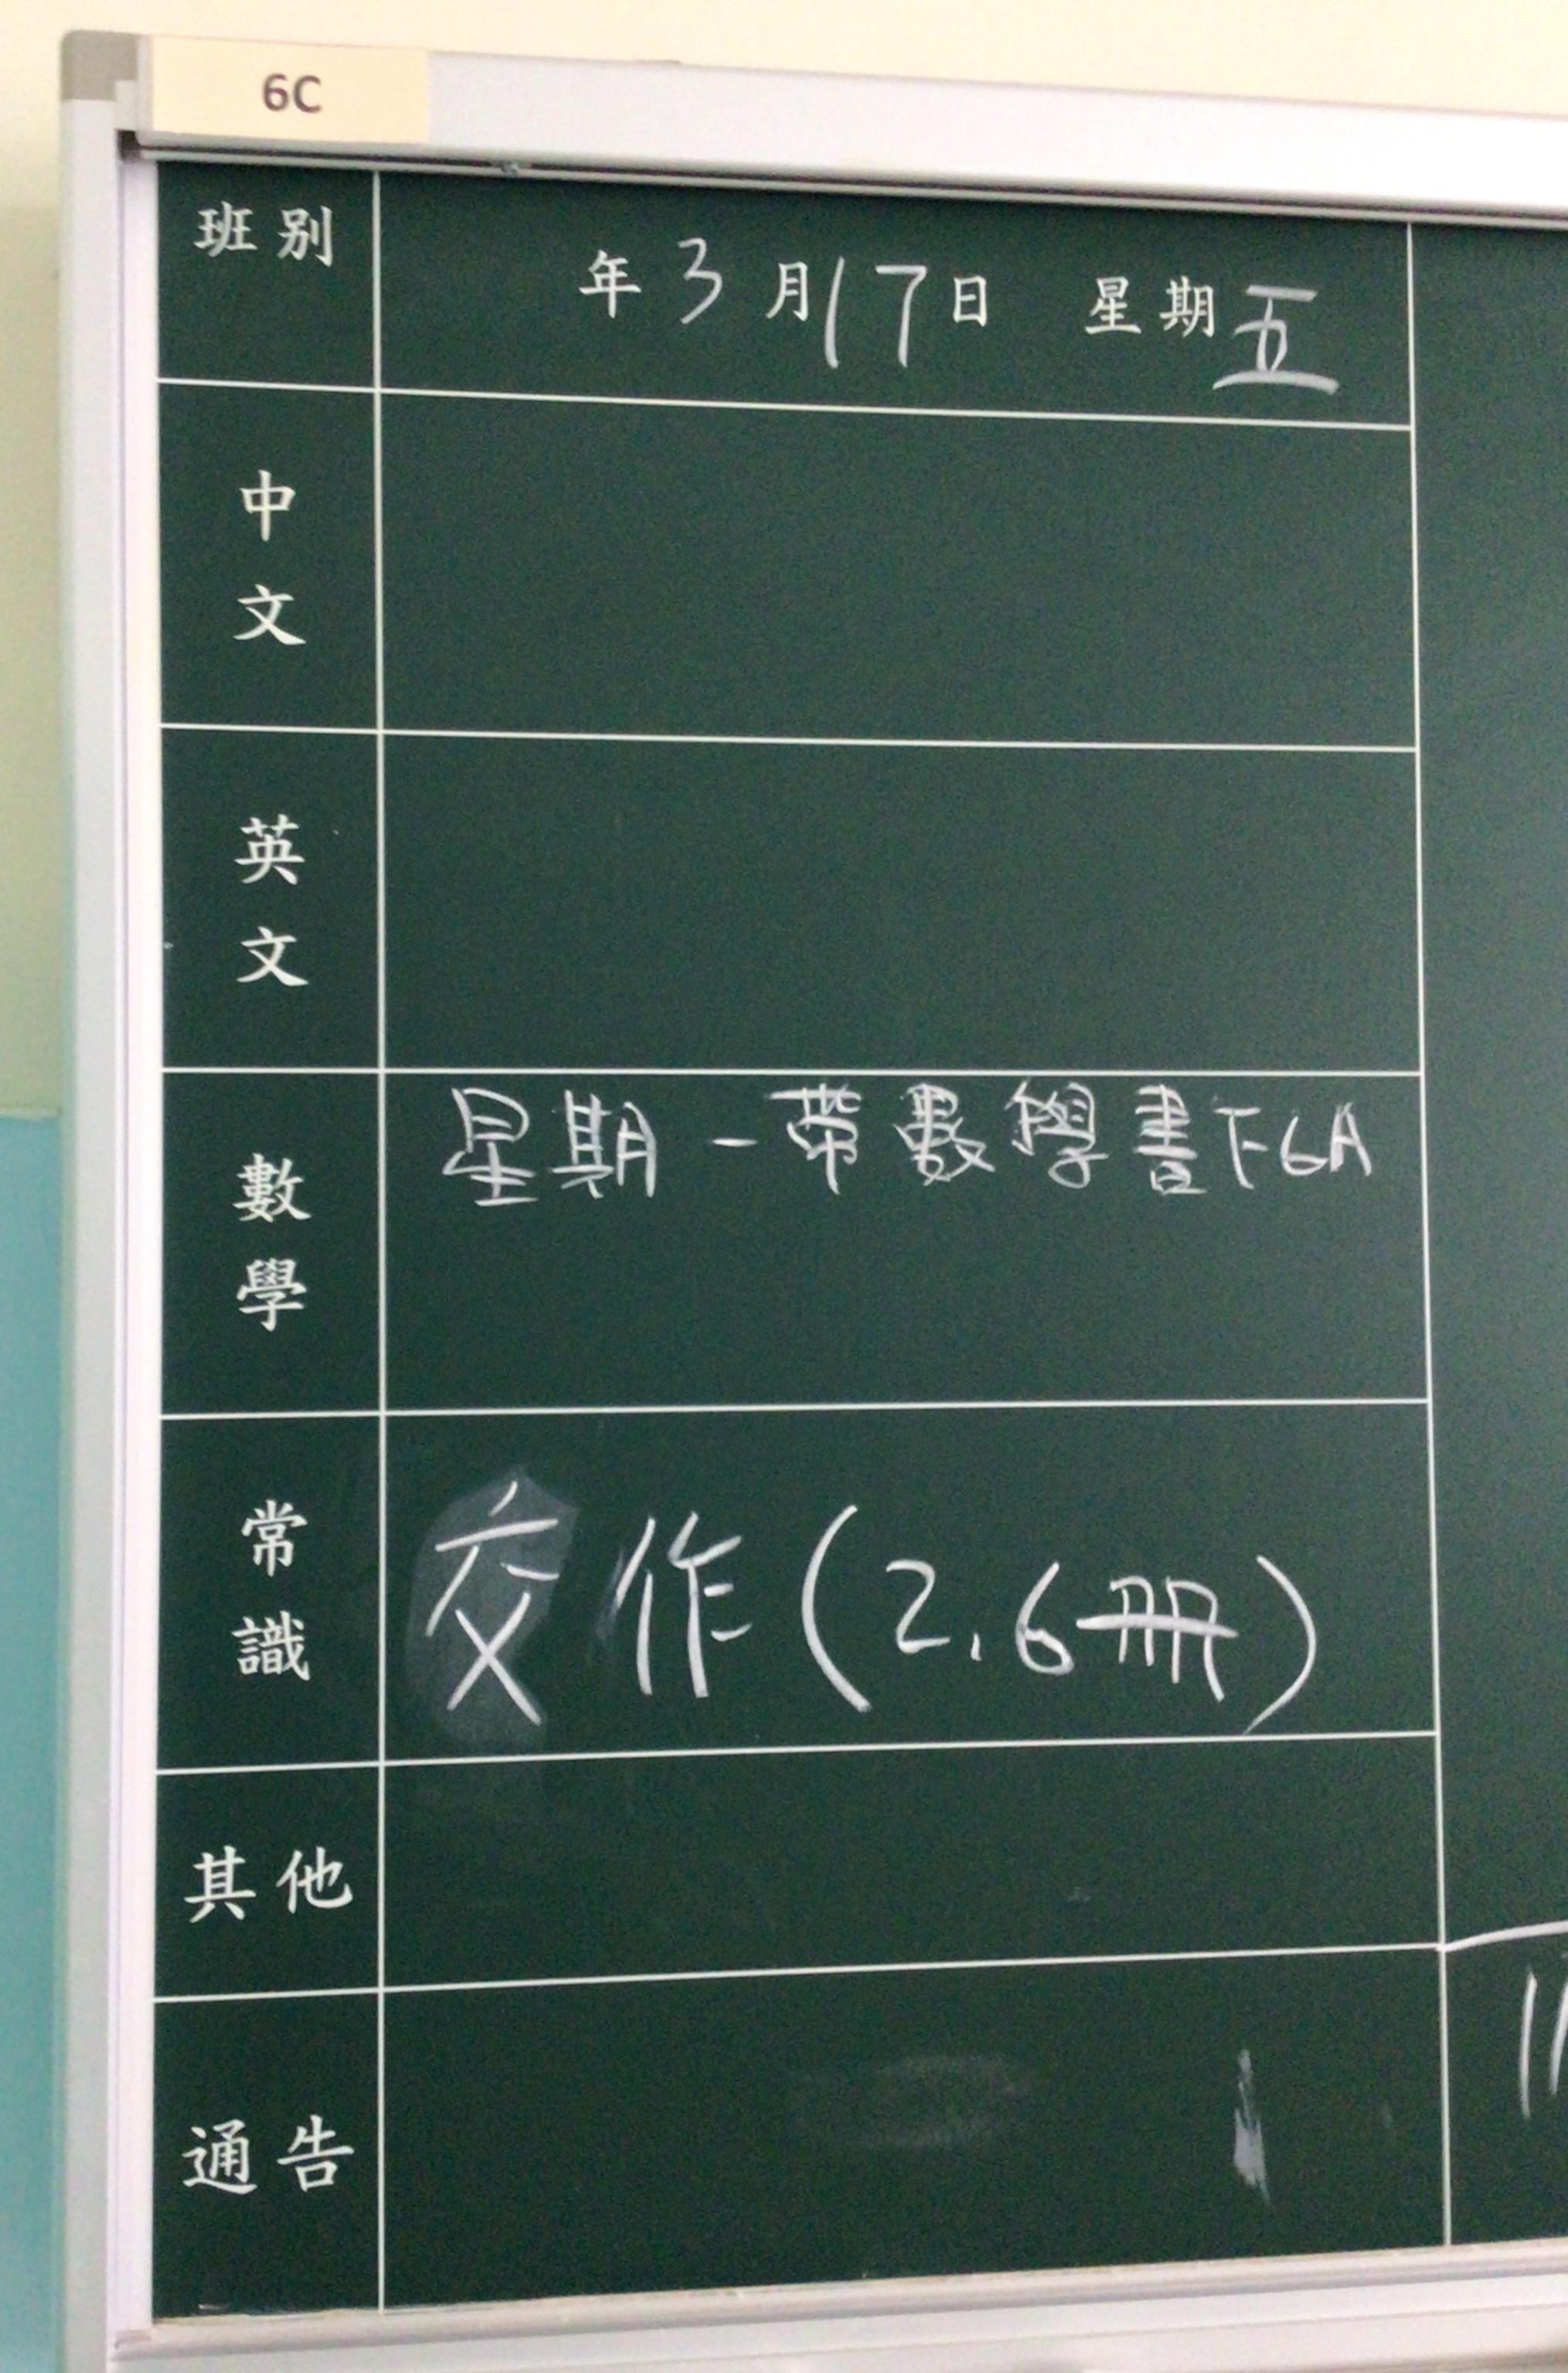 6C
班別
年3月17日 星期五
中文
英文
數學
星期一帶數學書下6A
常識
交作(2.6冊)
其他
通告